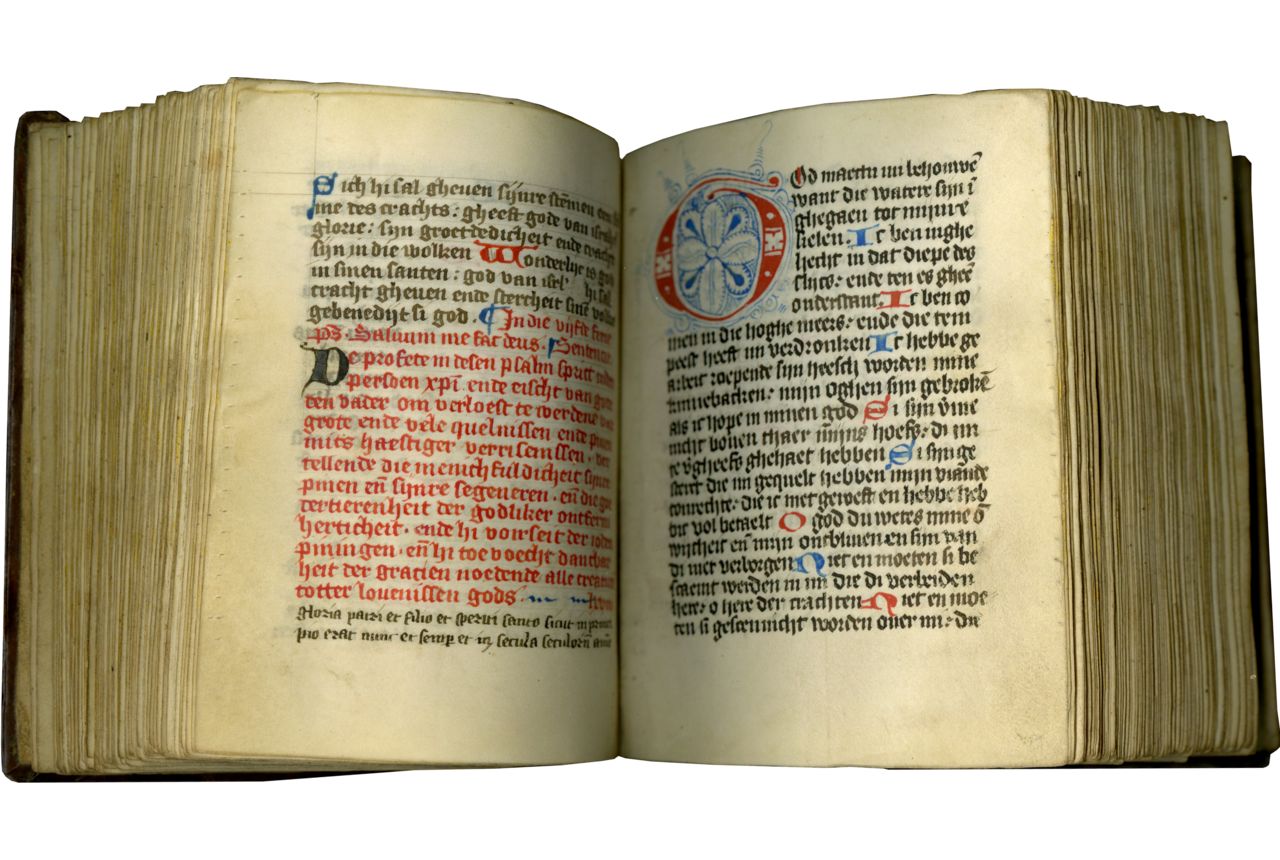 Sich hi sal gheven sijnre stēmen een
me des crachts: gheeft gode van israhel
glorie: sijn grootdedicheit ende cracht
sijn in die wolken Wonderlijc is god
in sinen santen: god van isrl' hi sal
cracht gheven ende stercheit sinē volke
gebenedijt si god. In die vijfde ferie
ps. Saluum me fac deus. Sentencie.
De profete in desen psalm sprict
persoen xp̄i ende eischt van gode
den vader om verloest te werdene van
grote ende vele quelnissen ende pinen
mits haestiger verrisenissen. ver
tellende die menichfuldicheit sijnre
pinen en̄ sijnre segeneren. en̄ die goe
dertierenheit der godliker ontferm
herticheit. ende hi voirseit der ioden
piningen. en̄ hi toe voecht dancbaer
heit der gracien noedende alle creatu
totter lovenissen gods.
gloria patri et filio et spiritui santo sicut in princi
pio erat nunc et semp et in secula seculorū amē
God maectu mi behouwē
want die watere sijn ī
ghegaen tot mijnre
sielen. Ic ben inghe
hecht in dat diepe des
slijcs: ende ten es gheē
onderstant. Ic ben co
men in die hoghe meers: ende die tem
peest heeft mi verdronken Ic hebbe ge
arbeit roepende sijn heesch worden mine
kinnebacken: mijn oghen sijn gebrokē
als ic hope in minen god Si sijn
nicht boven thaer mijns hoefs: di mi
te vgheefs ghehaet hebben Si sijn ge
sterct die mi gequelt hebben mijn viāde
tonrechte: die ic niet geroeft en hebbe heb
dic vol betaelt O god du wetes mine ō
wijsheit en̄ mijn onsbliuen en sijn van
di niet verborgen Niet en moeten si be
scaemt werden in mi die di verbeiden
here: o here der crachten Niet en moe
ten si gescennicht worden over mi: die